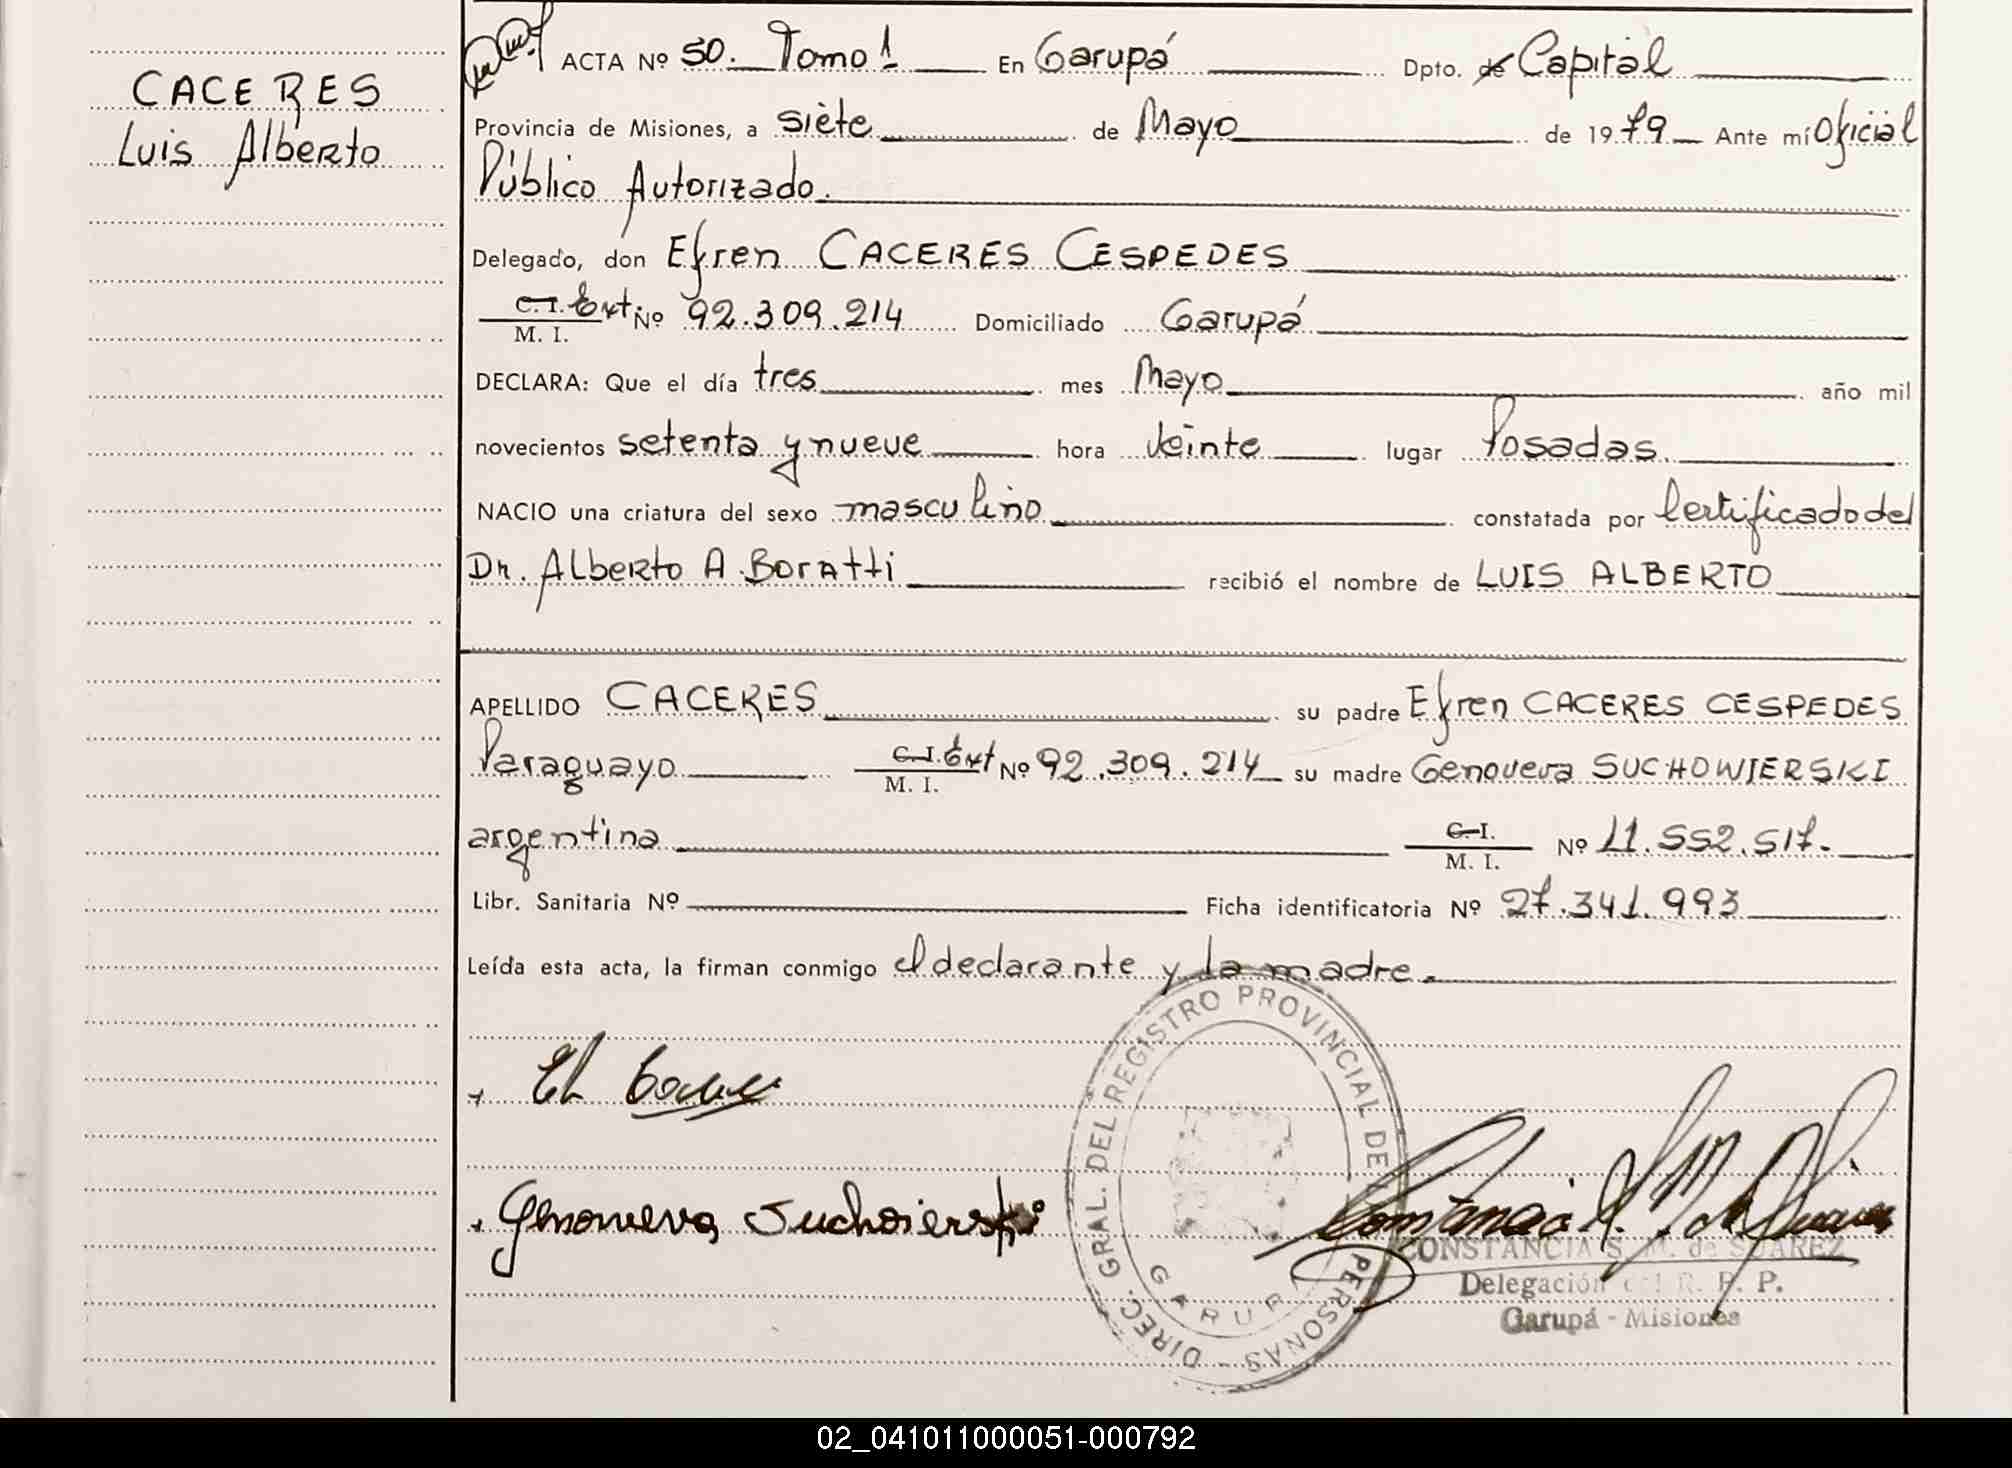 CACERES
Luis Alberto
ACTA Nº 50. Tomo 1 En Garupá Dpto. de Capital
Provincia de Misiones, a siete de Mayo de 1979 Ante mí Oficial
Público Autorizado.
Delegado, don Efren CACERES CESPEDES
C. I. Ext. Nº 92.309.214 Domiciliado Garupá
M. I.
DECLARA: Que el día tres mes Mayo año mil
novecientos setenta y nueve hora veinte lugar Posadas.
NACIO una criatura del sexo masculino constatada por Certificado del
Dr. Alberto A. Boratti recibió el nombre de LUIS ALBERTO
APELLIDO CACERES su padre Efren CACERES CESPEDES
Paraguayo C. I. Ext Nº 92.309.214 su madre Genoveva SUCHOWIERSKI
M. I.
argentina C. I. Nº 11.552.517.
M. I.
Libr. Sanitaria Nº Ficha identificatoria Nº 27.341.993
Leída esta acta, la firman conmigo el declarante y la madre.
DIREC. GRAL. DEL REGISTRO PROVINCIAL DE PERSONAS
GARUPA
Genoveva Suchoierski
CONSTANCIA S. M. de SUAREZ
Delegación del R. P. P.
Garupá - Misiones
02_041011000051-000792